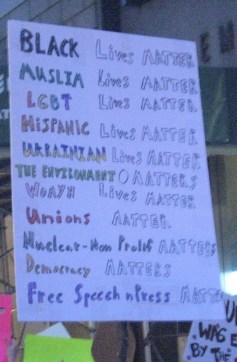 BLACK Lives MATTER
MUSLIM Lives MATTER
LGBT Lives MATTER
HISPANIC Lives MATTER
UKRAINIAN Lives MATTER
THE ENVIRONMENT MATTERS
Lives MATTER
Unions MATTER
Nuclear-Non Prolif MATTERS
Democracy MATTERS
Free Speech n Press MATTE
WAGE
BY THE